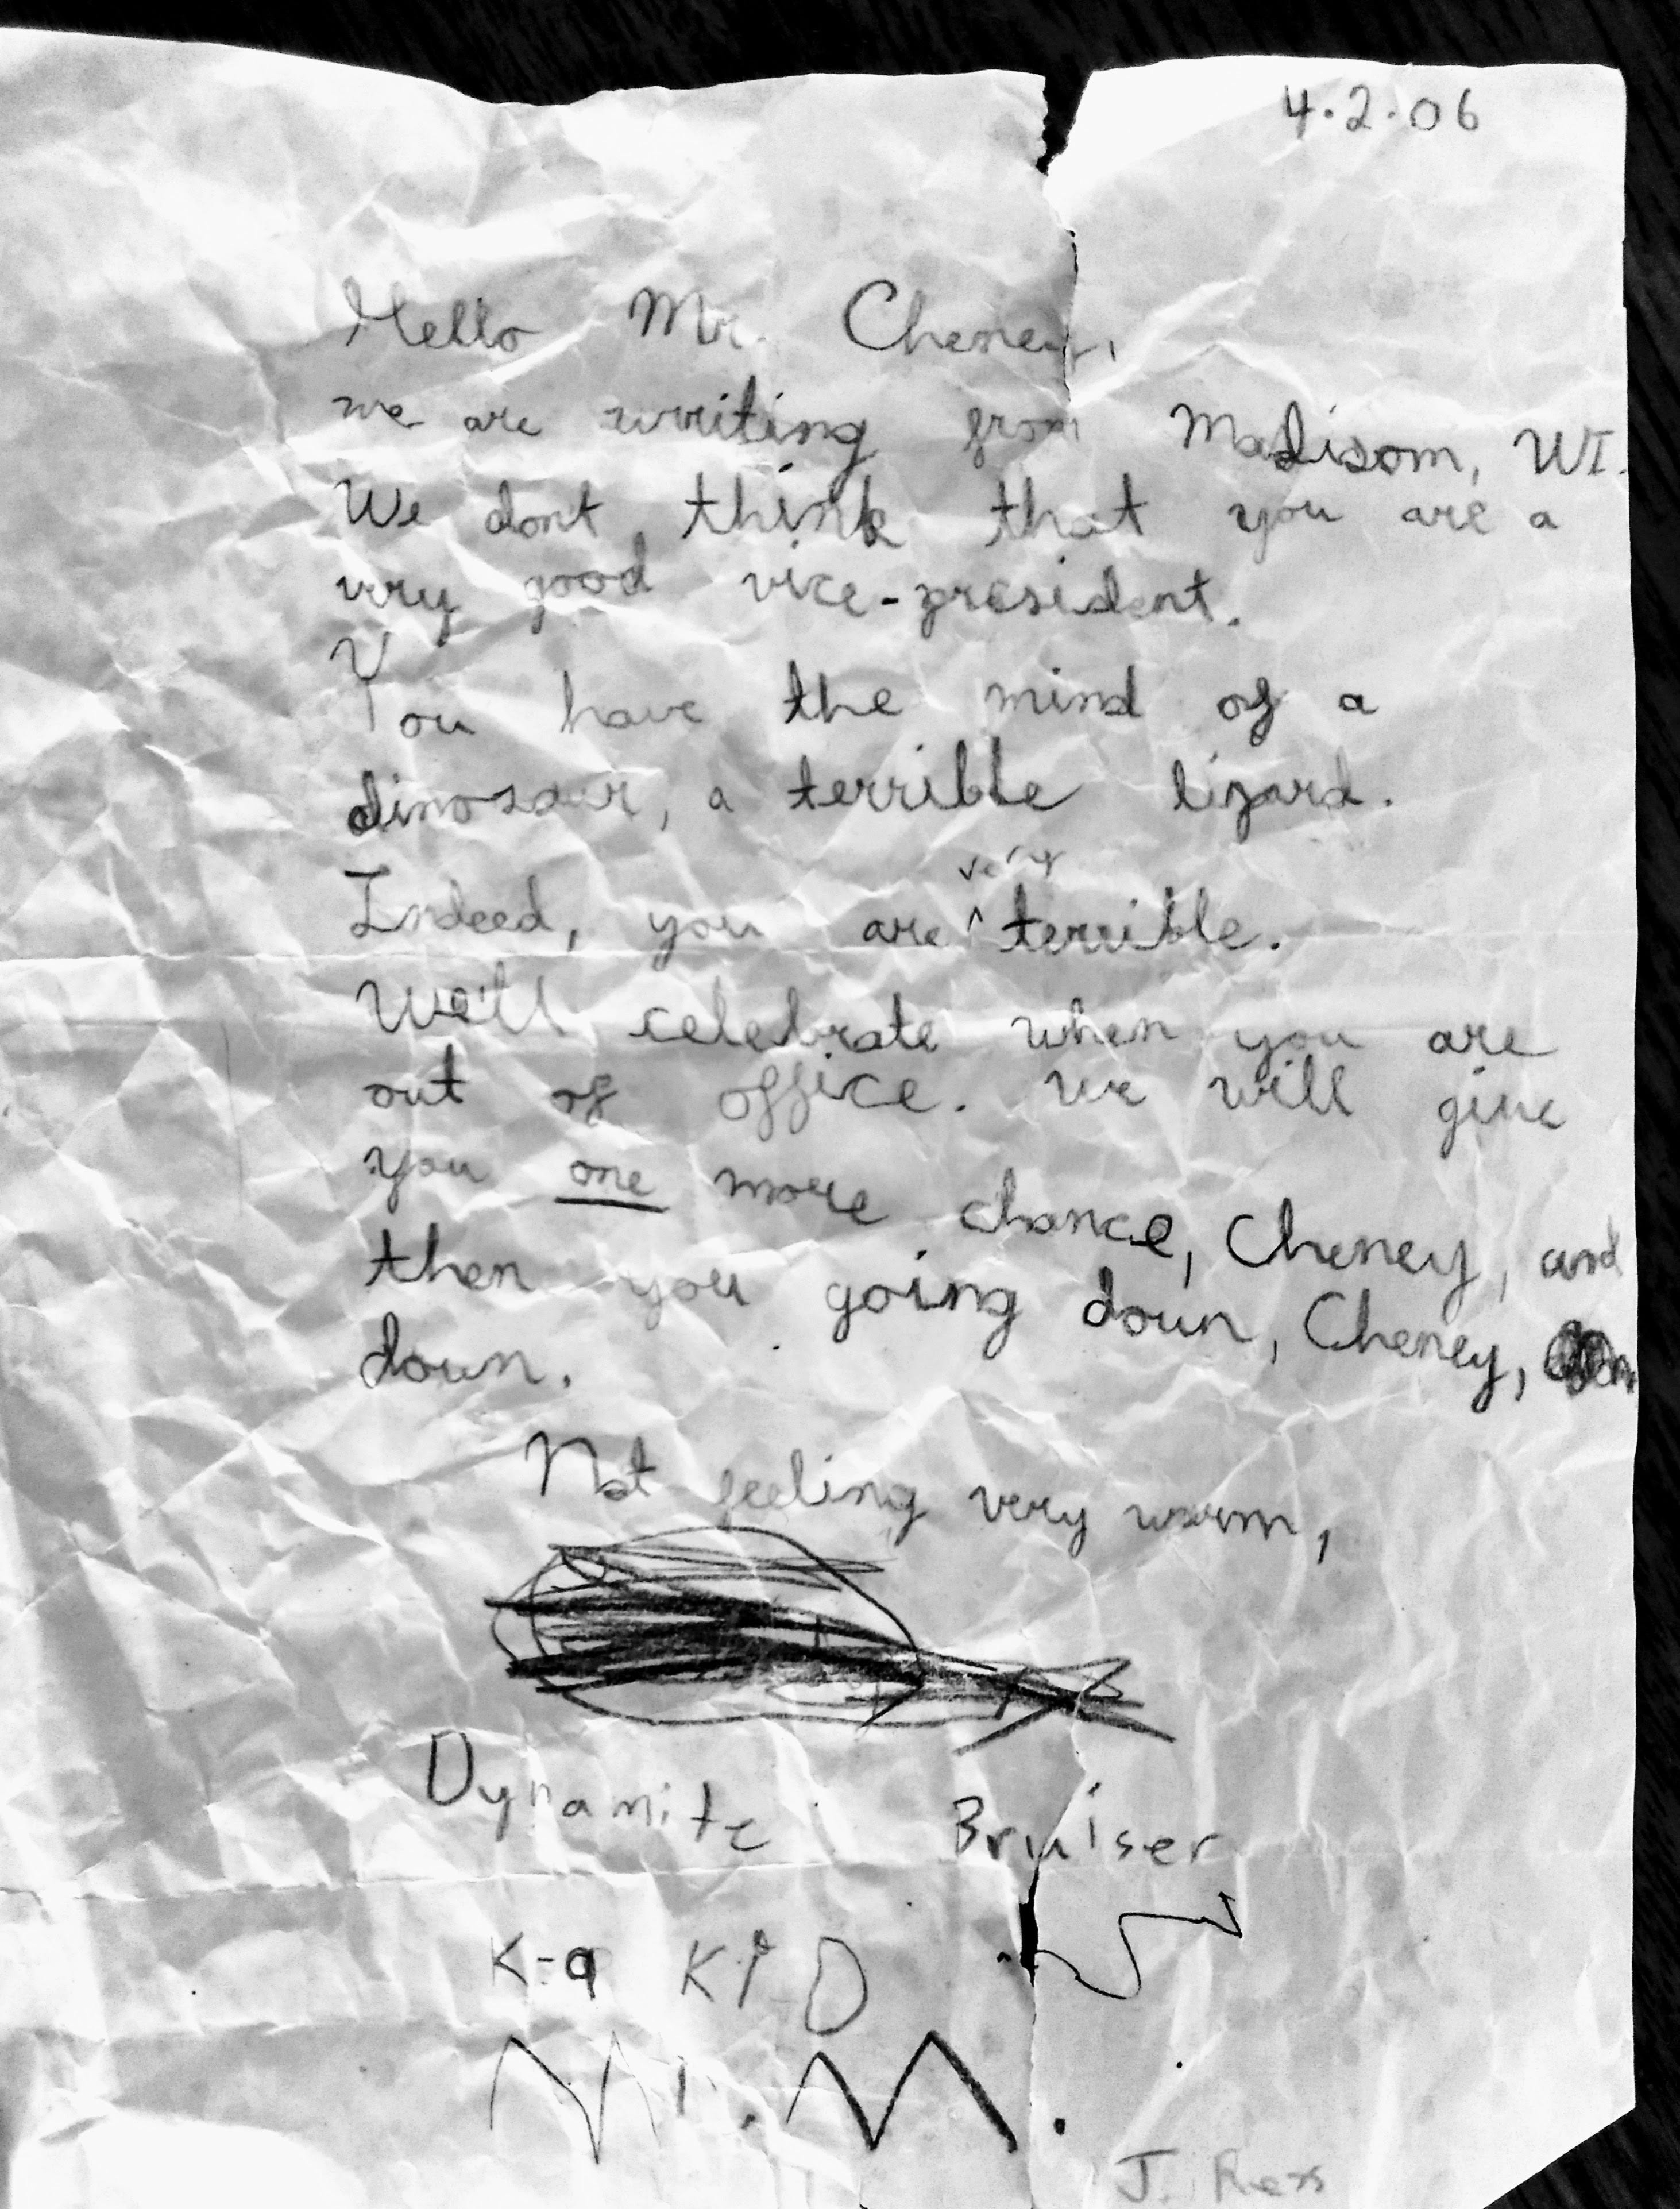 4.2.06
Hello Mr. Cheney,
we are writing from Madisom, WI.
We dont think that you are a
very good vice-president.
You have the mind of a
dinosaur, a terrible lizard.
very
Indeed, you are ^ terrible.
We'll celebrate when you are
out of office. We will give
you one more chance, Cheney, and
then you going down, Cheney,
down.
Not feeling very warm,
Dynamite Bruiser
K-9 KiD
Mr. M.
J.